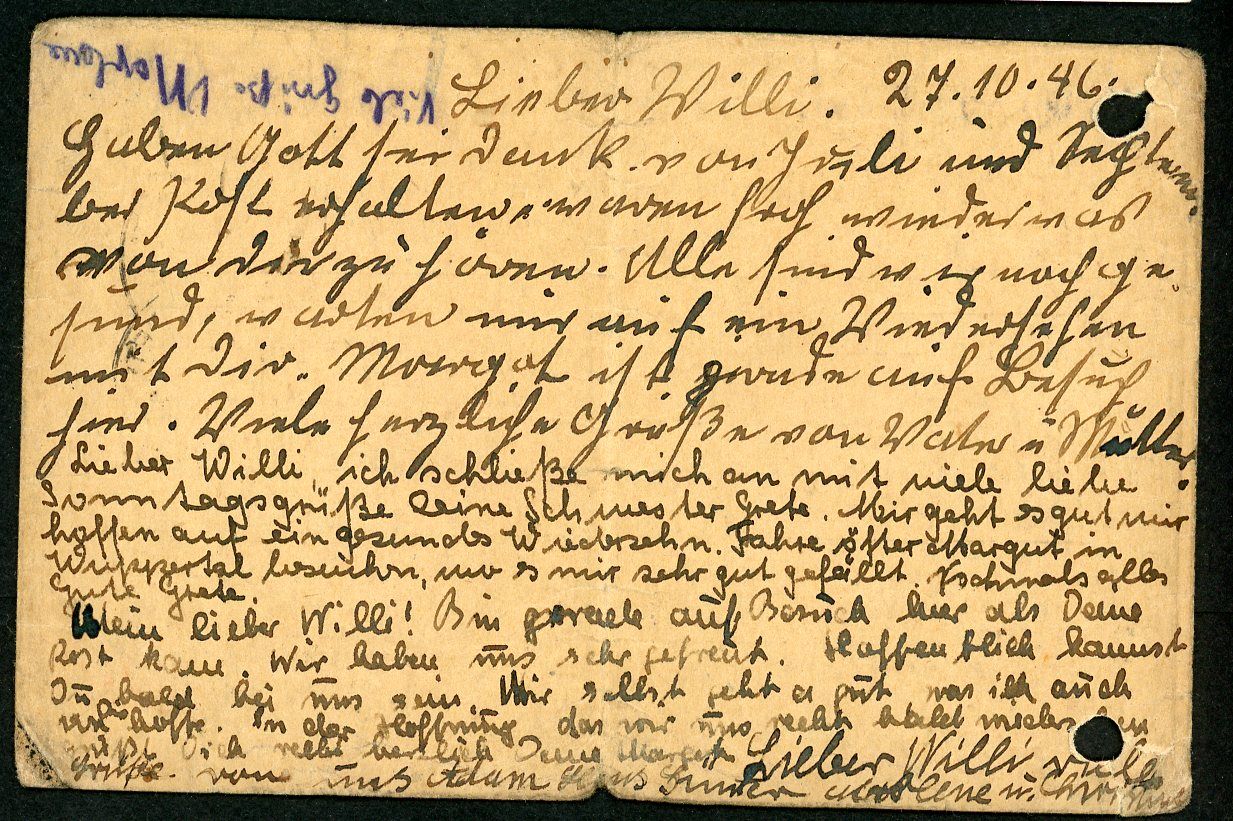 Viele Grüße
Lieber Willi. 27.10.46.
Haben Gott sei Dank von Juli und Septem
ber Post erhalten, waren froh wieder was
von dir zu hören. Alle sind wir noch ge-
sund, warten nur auf ein Wiedersehen
mit Dir. Margot ist gerade auf Besuch
hier. Viele herzliche Grüße von Vater u Mutter.
Lieber Willi, ich schließe mich an mit viele liebe
Sonntagsgrüße Deine Schwester Grete. Mir geht es gut wir
hoffen auf ein gesundes Wiedersehn. Fahre öfter Margot in
Wuppertal besuchen, wo es mir sehr gut gefällt. Nochmals alles
Gute Grete.
Mein lieber Willi! Bin gerade auf Besuch hier als Deine
Post kam. Wir haben uns sehr gefreut. Hoffentlich kannst
Du bald bei uns sein. Mir selbst geht es gut was ich auch
von hoffe. In der Hoffnung das wir uns recht bald wiedersehen
grüßt Dich recht herzlich Deine Margot. Lieber Willi viele
Grüße von uns Adam Hans Günter u.